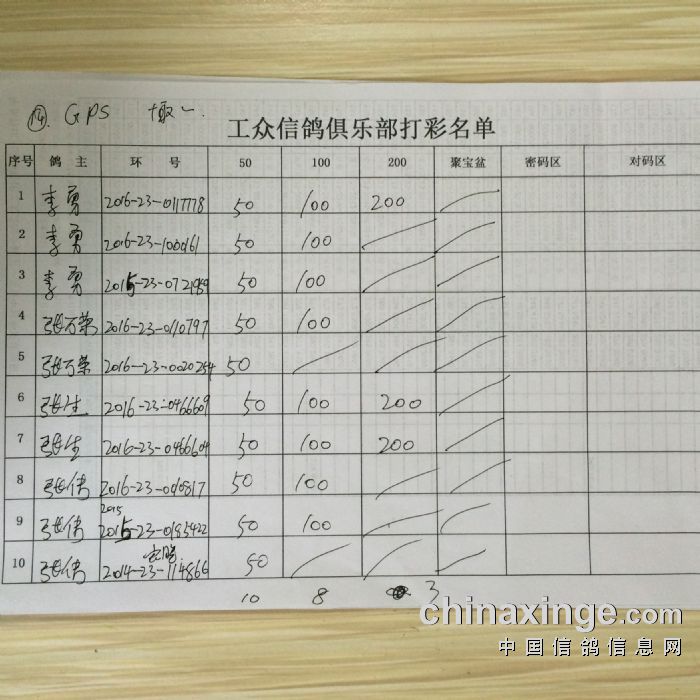 ⑭. GPS
工众信鸽俱乐部打彩名单
序号 鸽 主 环 号 50 100 200 聚宝盆 密码区 对码区
1 李勇 2016-23-0117778 50 100 200
2 李勇 2016-23-100161 50 100
3 李勇 2015-23-0721989 50 100
4 张万荣 2016-23-0110797 50 100
5 张万荣 2016-23-0020254 50
6 张生 2016-23-0466609 50 100 200
7 张生 2016-23-0466604 50 100 200
8 张伟 2016-23-0010817 50 100
2015
9 张伟 2015-23-0185422 50 100
10 张伟 2014-23-114866 50
10 8 3
chinaxinge.com
中国信鸽信息网